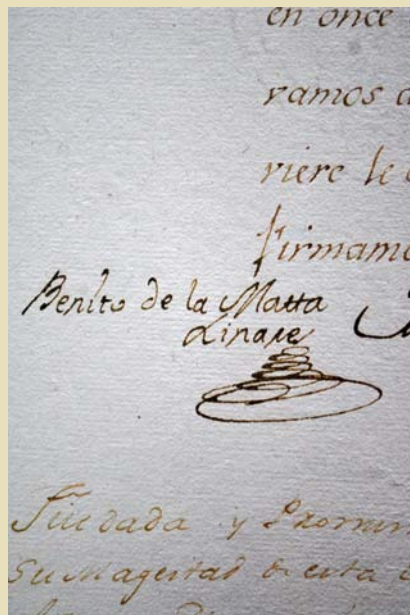 en once
vamos
riere le
firmamo
Benito de la Matta
Linare
Fue dada y Pronun
Su Magestad de esta